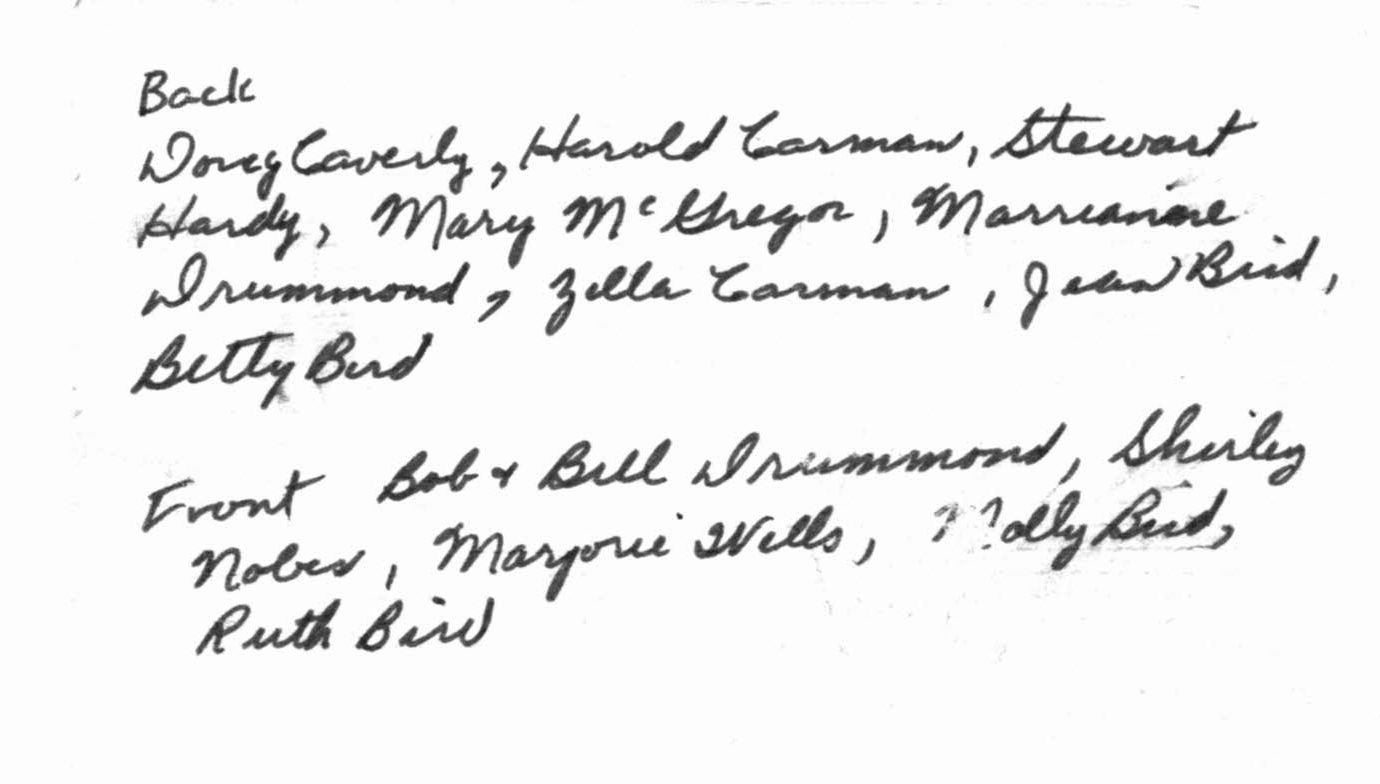 Back
Doug Caverly, Harold Carman, Stewart
Hardy, Mary McGregor, Marrianne
Drummond, Zella Carman, Jean Bird,
Betty Bird
Front Bob & Bill Drummond, Shirley
Nobes, Marjorie Wells, Molly Bird,
Ruth Bird